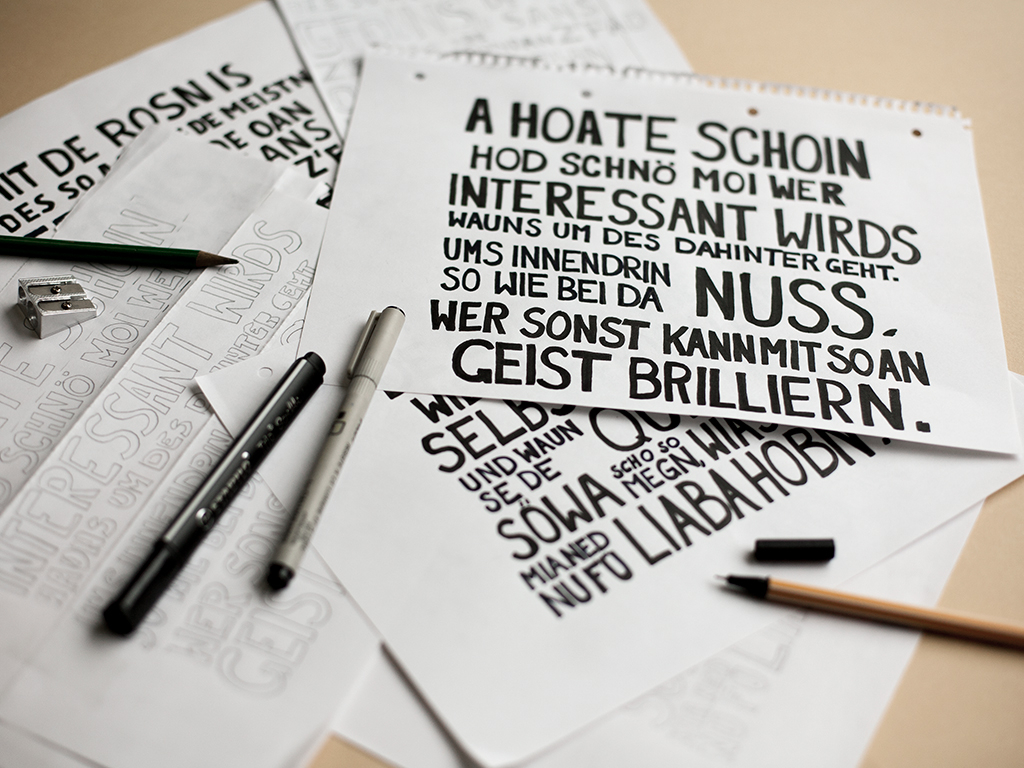 A HOATE SCHOIN
HOD SCHNÖ MOI WER
INTERESSANT WIRDS
WAUNS UM DES DAHINTER GEHT.
UMS INNENDRIN
SO WIE BEI DA NUSS.
WER SONST KANN MIT SO AN
GEIST BRILLIERN.
MIT DE ROSN IS
DES SO
DE MEISTN
DE OAN
ANS
Z'
SELBS
UND WAUN
SE, DE
SÖWA
SCHO SO
MEGN, WIAS
MIANED
NUFU LIABA HOBN
SCHNÖ MOI WER
INTERESSANT WIRDS
WAUNS UM DES
INTER GEHT
WER SONS
GEIS